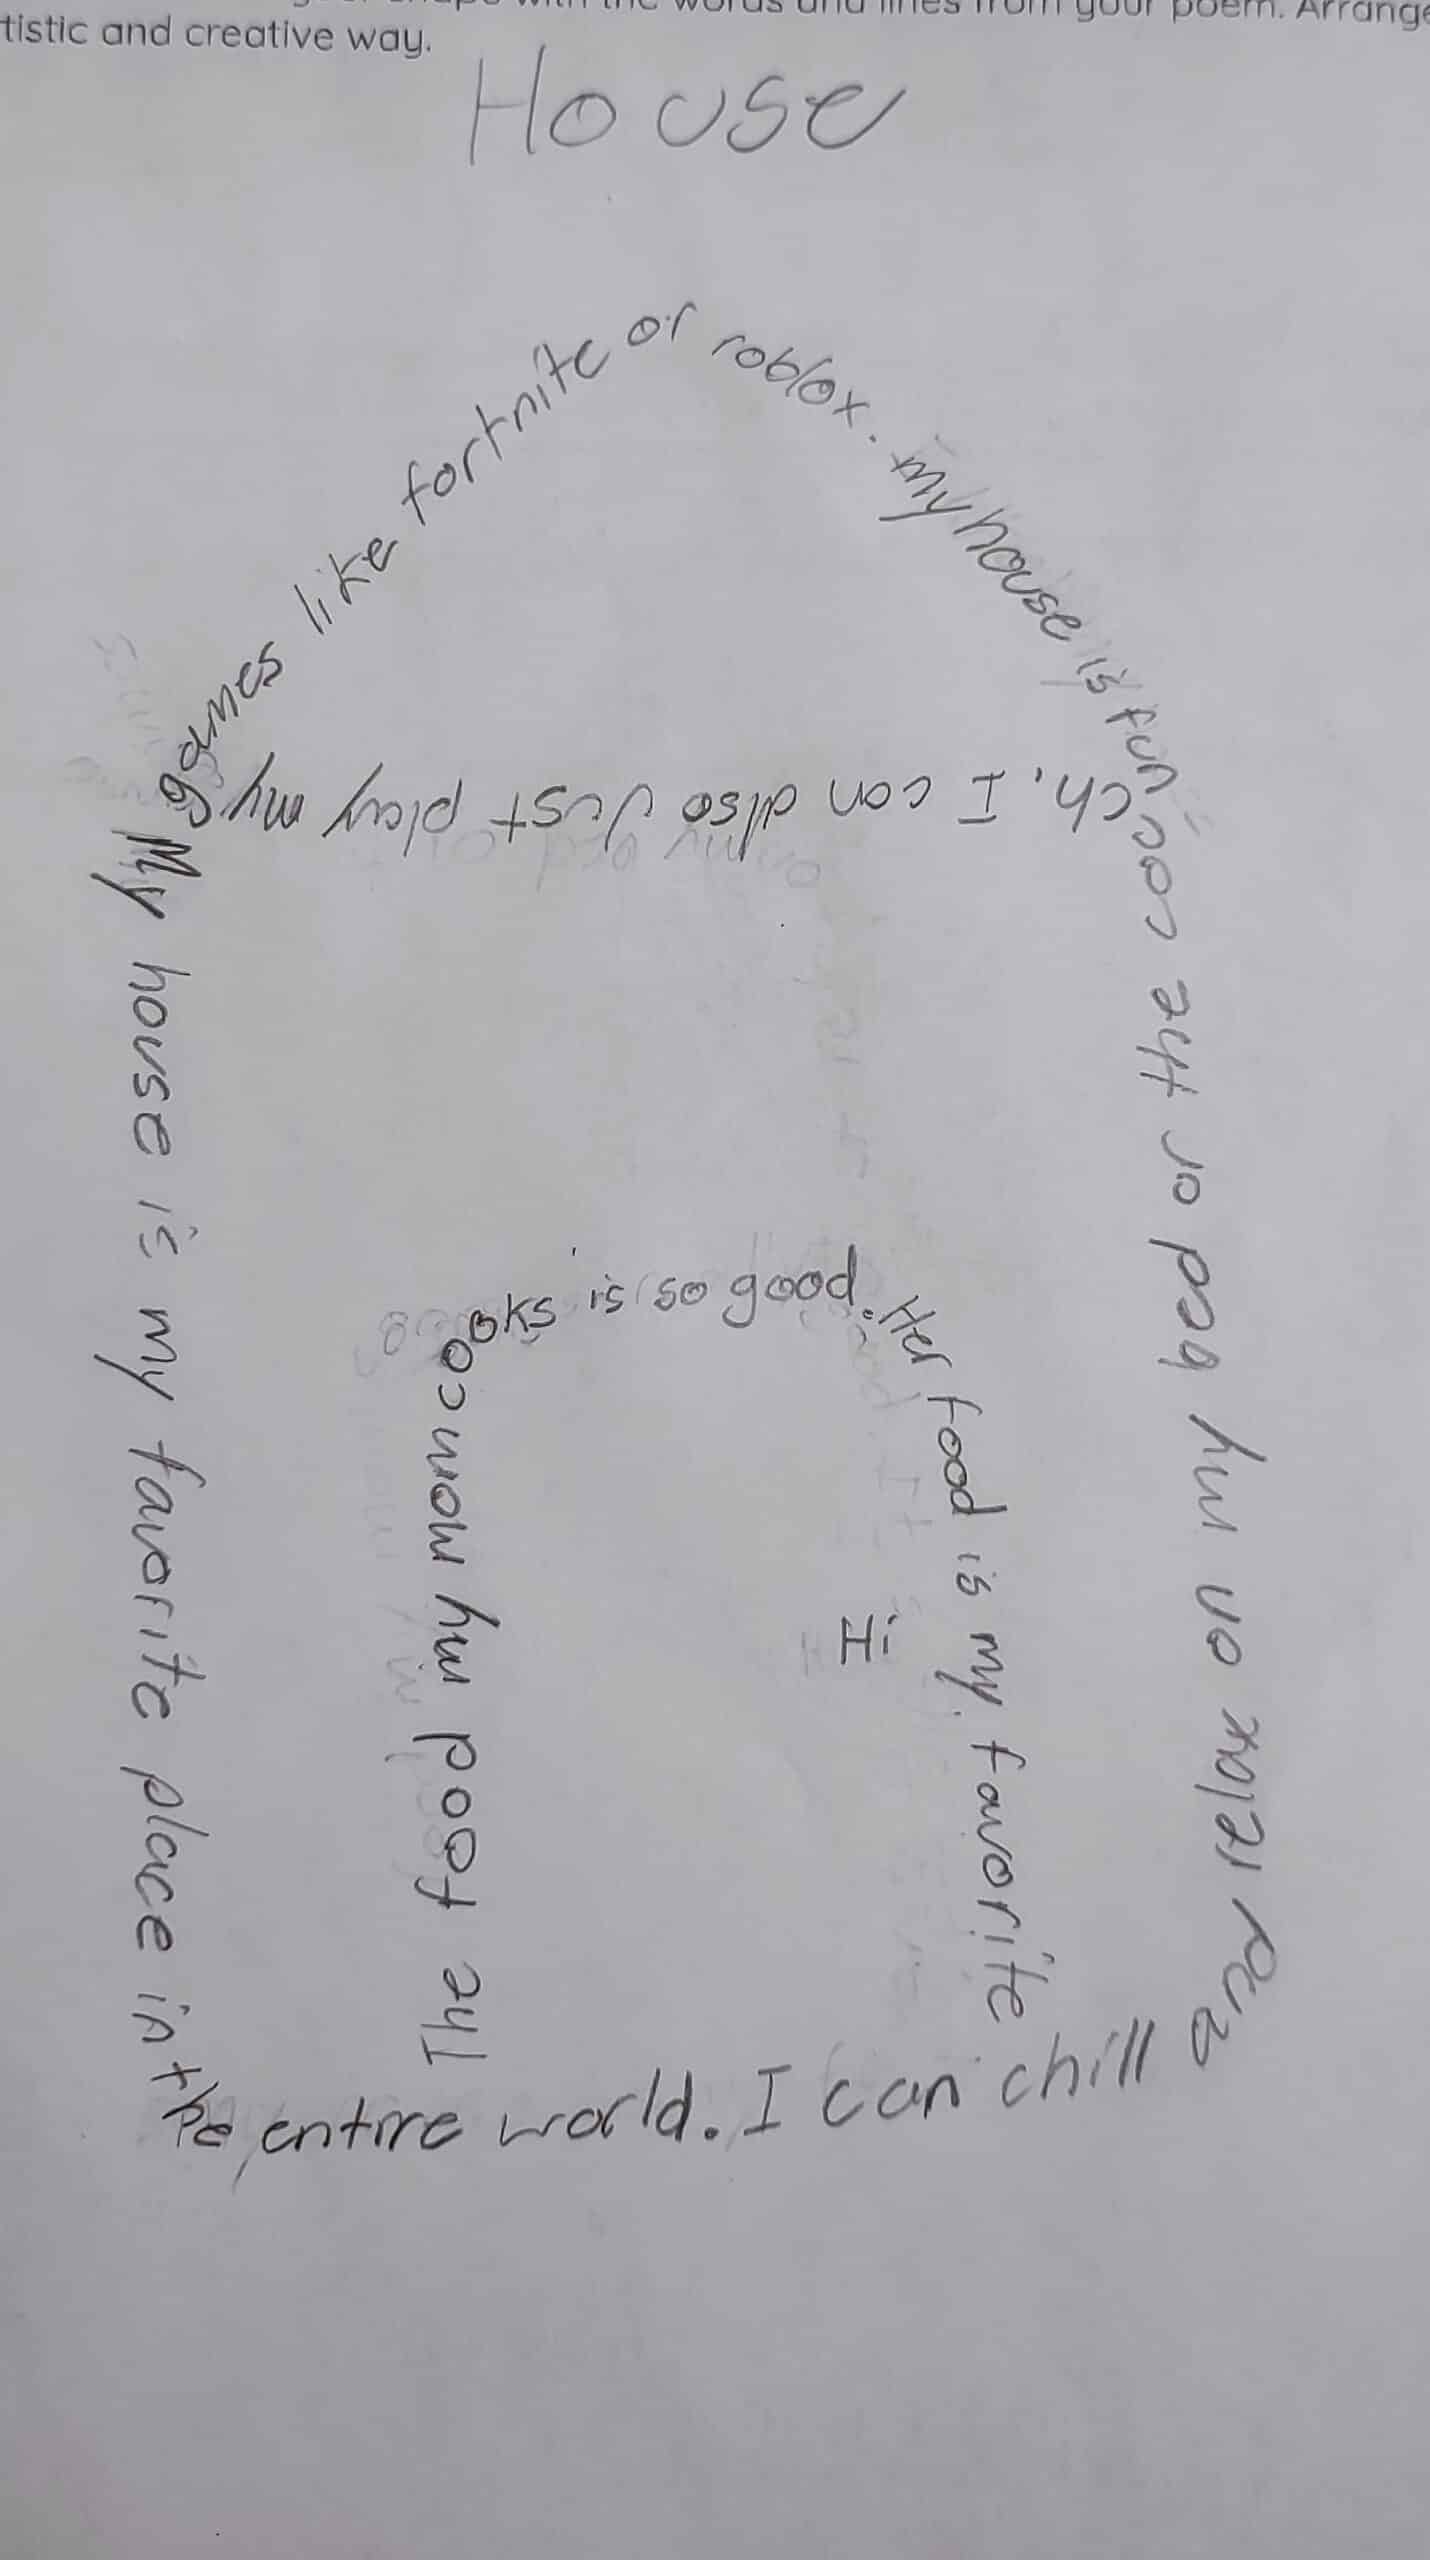 shape with the words and lines from your poem. Arrange
tistic and creative way.
House
My house is my favorite place in
the entire world. I can chill
and relax on my bed or the cou
ch. I can also Just play my
games like fortnite or roblox. my house is fun
The food my mom cooks is so good. Her food is my favorite
Hi